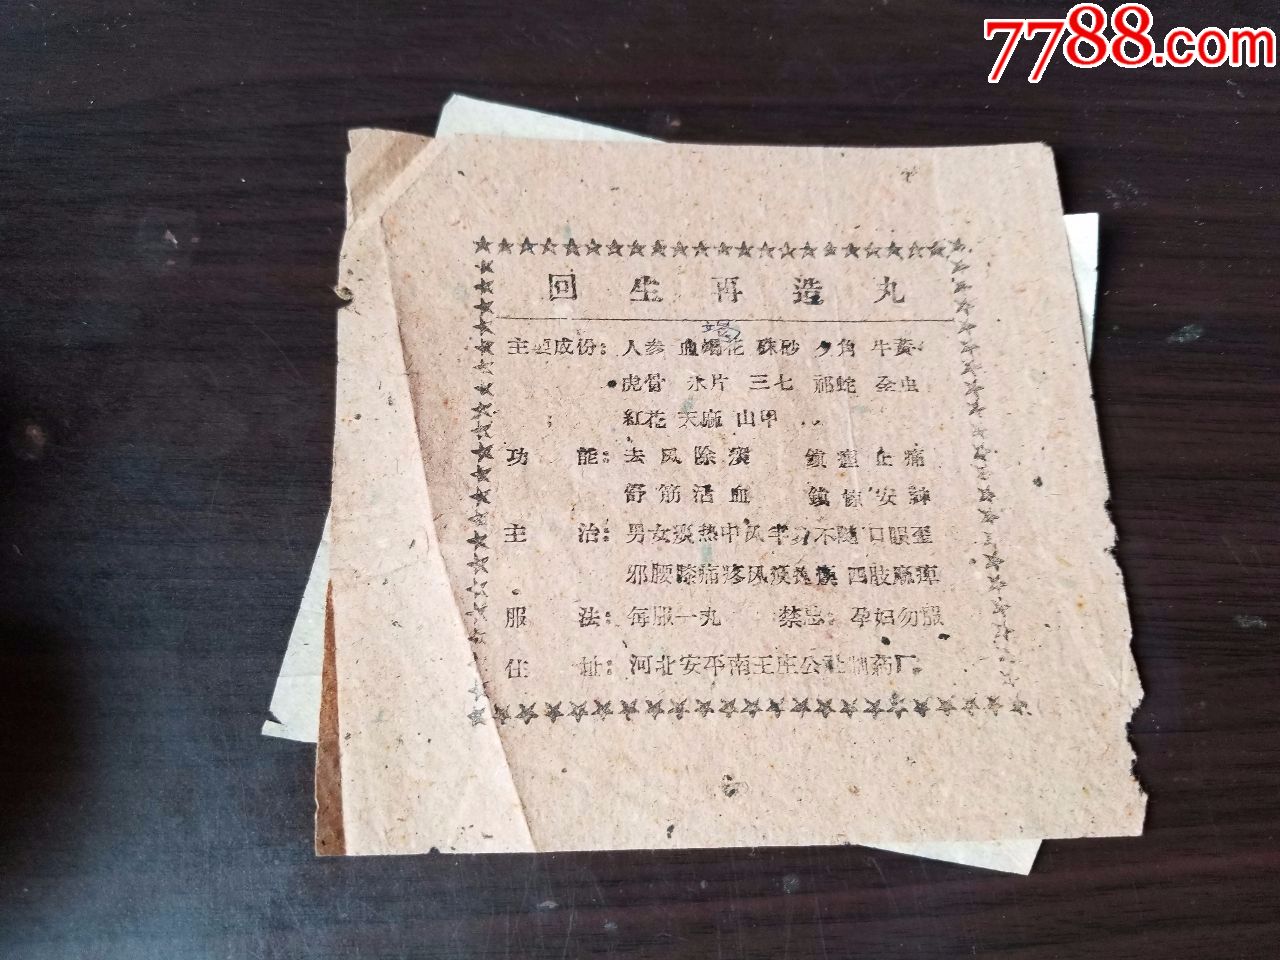 7788.com
回生再造丸
竭
主要成份：人参 血竭花 硃砂 夕角 牛黄
虎骨 水片 三七 祁蛇 全虫
紅花 天麻 山甲
功能：去风除痰 鎮痙止痛
舒筋活血 鎮惊安神
主治：男女痰热中风半身不随口眼歪
邪腰膝痛疼风痰 四肢麻痺
服法：每服一丸 禁忌：孕妇勿服
住址：河北安平南王庄公社制药厂